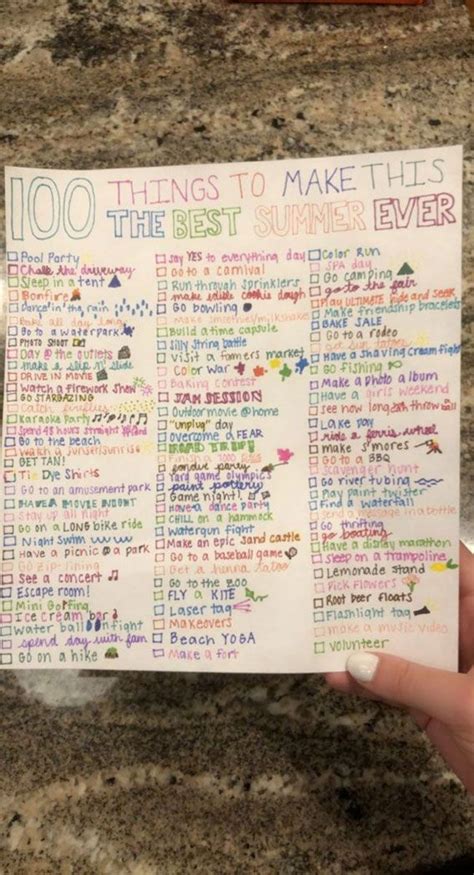 100 THINGS TO MAKE THIS
THE BEST SUMMER EVER
Pool Party
Chalk the driveway
Sleep in a tent
Bonfire
Dance in the rain
Bake all day long
Go to a waterpark
PHOTO SHOOT
Day @ the outlets
make a slip n' slide
DRIVE IN MOVIE
Watch a firework show
GO STARGAZING
Catch fireflies
Karaoke Party
Spend 48 hours straight
Go to the beach
Watch a sunset/sunrise
GET TAN!
Tie Dye Shirts
Go to an amusement park
HAVE A MOVIE NIGHT
Stay up all night
Go on a LONG bike ride
Night Swim
Have a picnic @ a park
Go zip-lining
See a concert
Escape room!
Mini Golfing
Ice cream bar
Water balloon fight
spend day with fam
Go on a hike
say YES to everything day
Go to a carnival
Run through sprinklers
make edible cookie dough
Go bowling
Make smoothies/milkshakes
Build a time capsule
Silly string battle
Visit a farmers market
Color War
Baking contest
JAM SESSION
Outdoor movie @ home
"unplug" day
Overcome a FEAR
ROAD TRIP!
Finish a 1000 piece
fondue party
Yard game olympics
paint pottery
Game night!
Have a dance party
CHILL on a hammock
Watergun fight
Make an epic sand castle
Go to a baseball game
Get a henna tatoo
Go to the zoo
FLY a KITE
Laser tag
Makeovers
Beach YOGA
Make a fort
Color Run
SPA day
Go camping
go to the fair
Play ULTIMATE hide and seek
Make friendship bracelets
BAKE SALE
Go to a rodeo
Have a shaving cream fight
Go fishing
Make a photo album
Have a girls weekend
See how long throw ball
Lake Day
ride a ferris wheel
make s'mores
Go to a BBQ
Scavenger hunt
Go river tubing
Play paint twister
Find a waterfall
Send a message in a bottle
Go thrifting
go boating
Have a disney marathon
Sleep on a trampoline
Lemonade stand
Pick flowers
Root beer floats
Flashlight tag
make a music video
volunteer